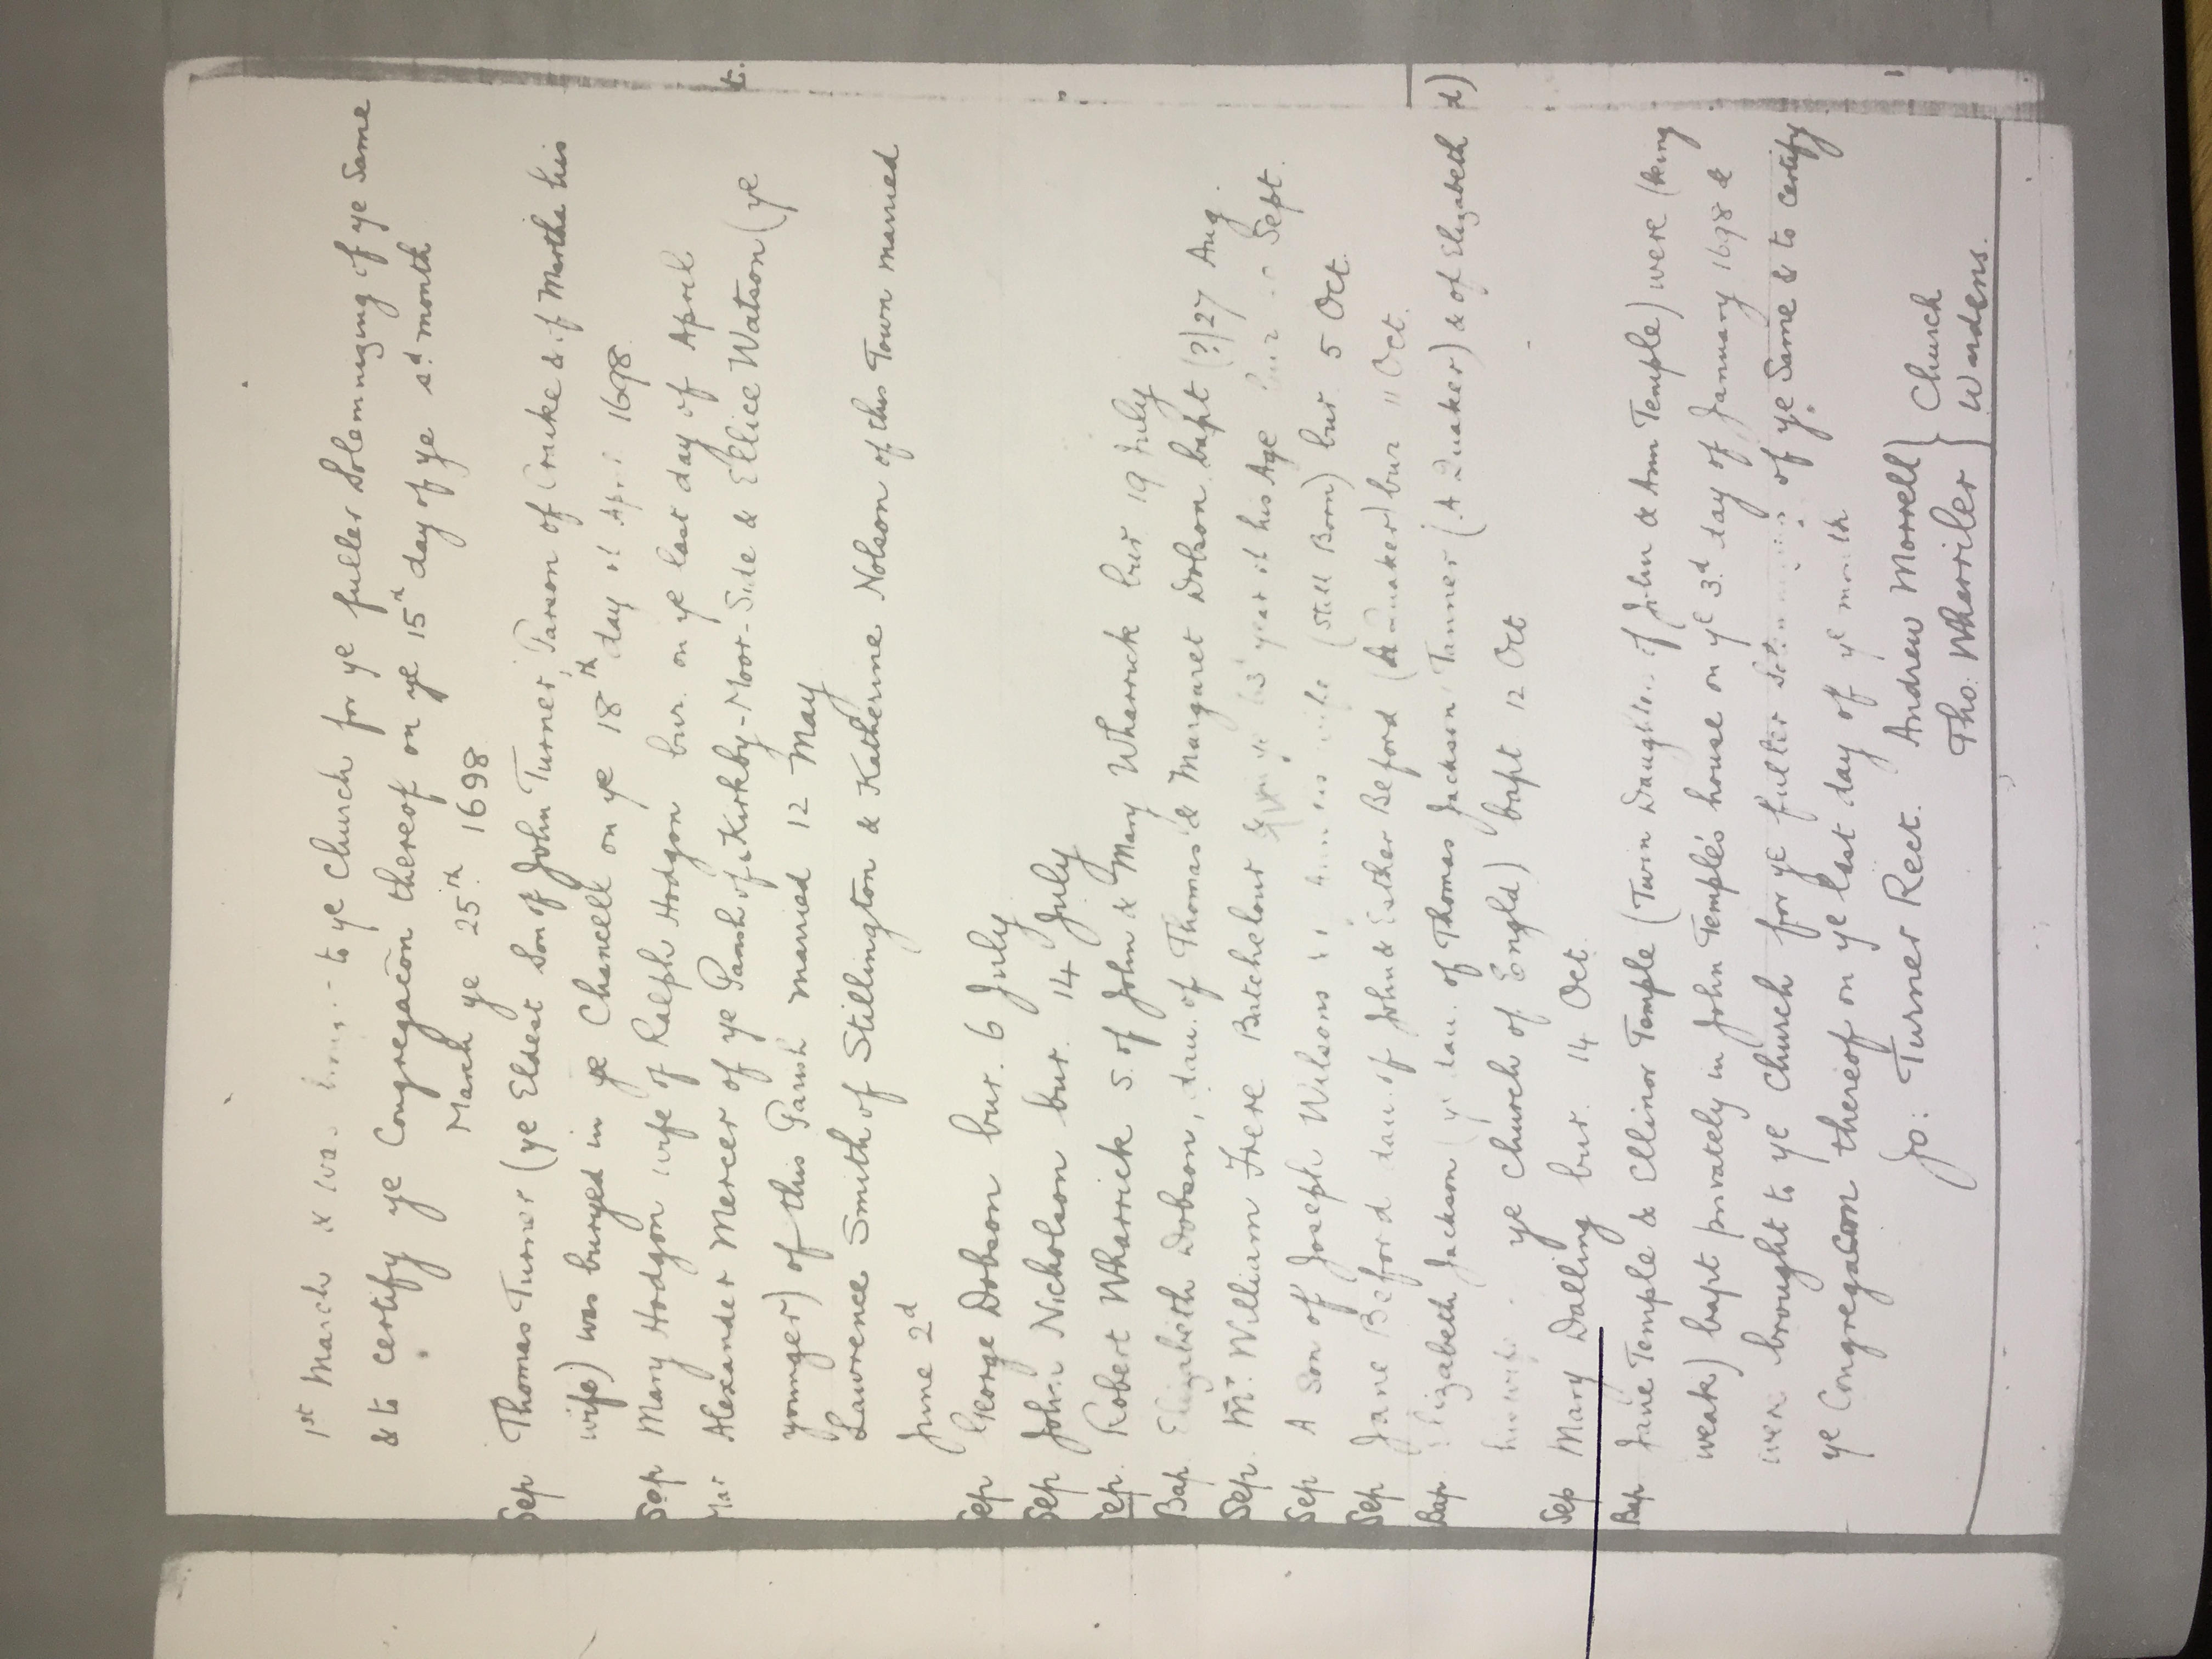 1st March & was to ye Church for ye fuller Solemnizing of ye Same
& to certify ye Congregacōn thereof on ye 15th day of ye sd. month
March ye 25th 1698
Sep Thomas Turner (ye Eldest Son of John Turner Parson of Craike & of Martha his
wife) was buryed in ye Chancell on ye 18th day of April 1698.
Sep Mary Hodgson wife of Ralph Hodgson bur. on ye last day of April
Mar Alexander Mercer of ye Parish of Kirkby-Moor-Side & Ellice Watson (ye
younger) of this Parish married 12 May
Lawrence Smith of Stillington & Katherine Nolson of this Town married
June 2d
Sep George Dobson bur. 6 July
Sep John Nicholson bur. 14 July
Sep. Robert Wharrick s. of John & Mary Wharrick bur 19 July
Bap. Elizabeth Dobson, dau. of Thomas & Margaret Dobson bapt (?) 27 Aug.
Sep. Mr. William Frere Batchelour year of his Age bur Sept.
Sep A Son of Joseph Wilsons wife (Still Born) bur 5 Oct.
Sep Jane Beford dau. of John & Esther Beford (A Quaker) bur 11 Oct.
Bap. Elizabeth Jackson (ye dau. of Thomas Jackson Tanner (A Quaker) & of Elizabeth
his wife ye Church of Engld) bapt 12 Oct
Sep Mary Dalling bur. 14 Oct.
Bap Jane Temple & Ellinor Temple (Twin Daughters of John & Ann Temple) were (being
weak) bapt privately in John Temple's house on ye 3d. day of January 1698 &
were brought to ye Church for ye fuller of ye Same & to certify
ye Congregacon thereof on ye last day of ye month
Jo: Turner Rect. Andrew Morrell } Church
Tho: Wherriler } Wardens.